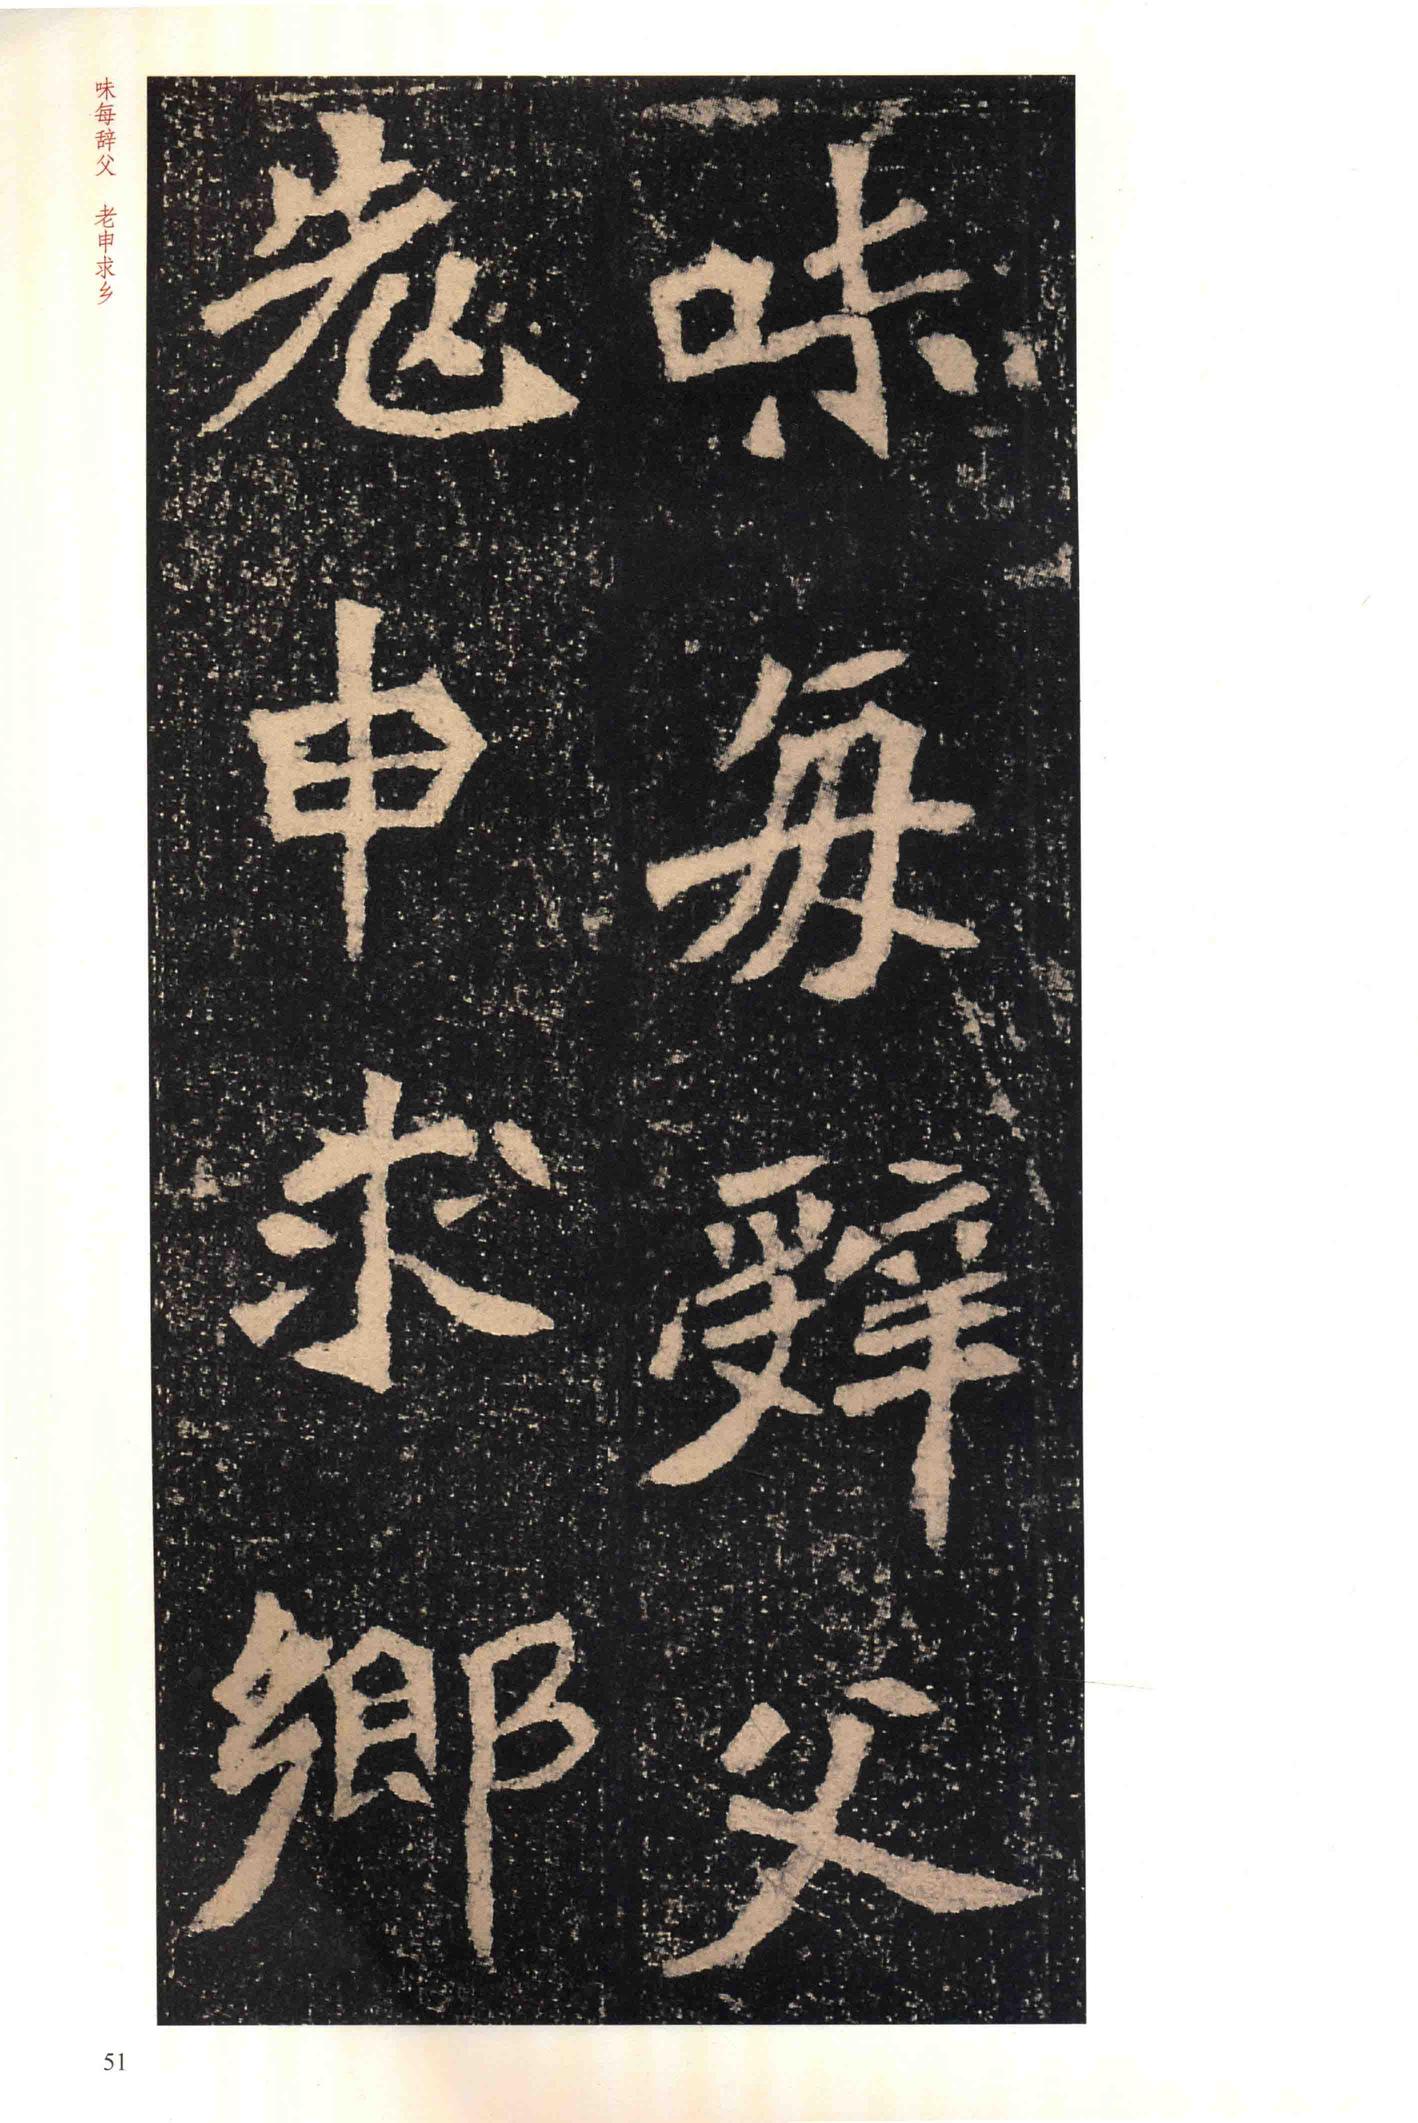 味每辞父
老申求鄉
味每辞父 老申求乡
51